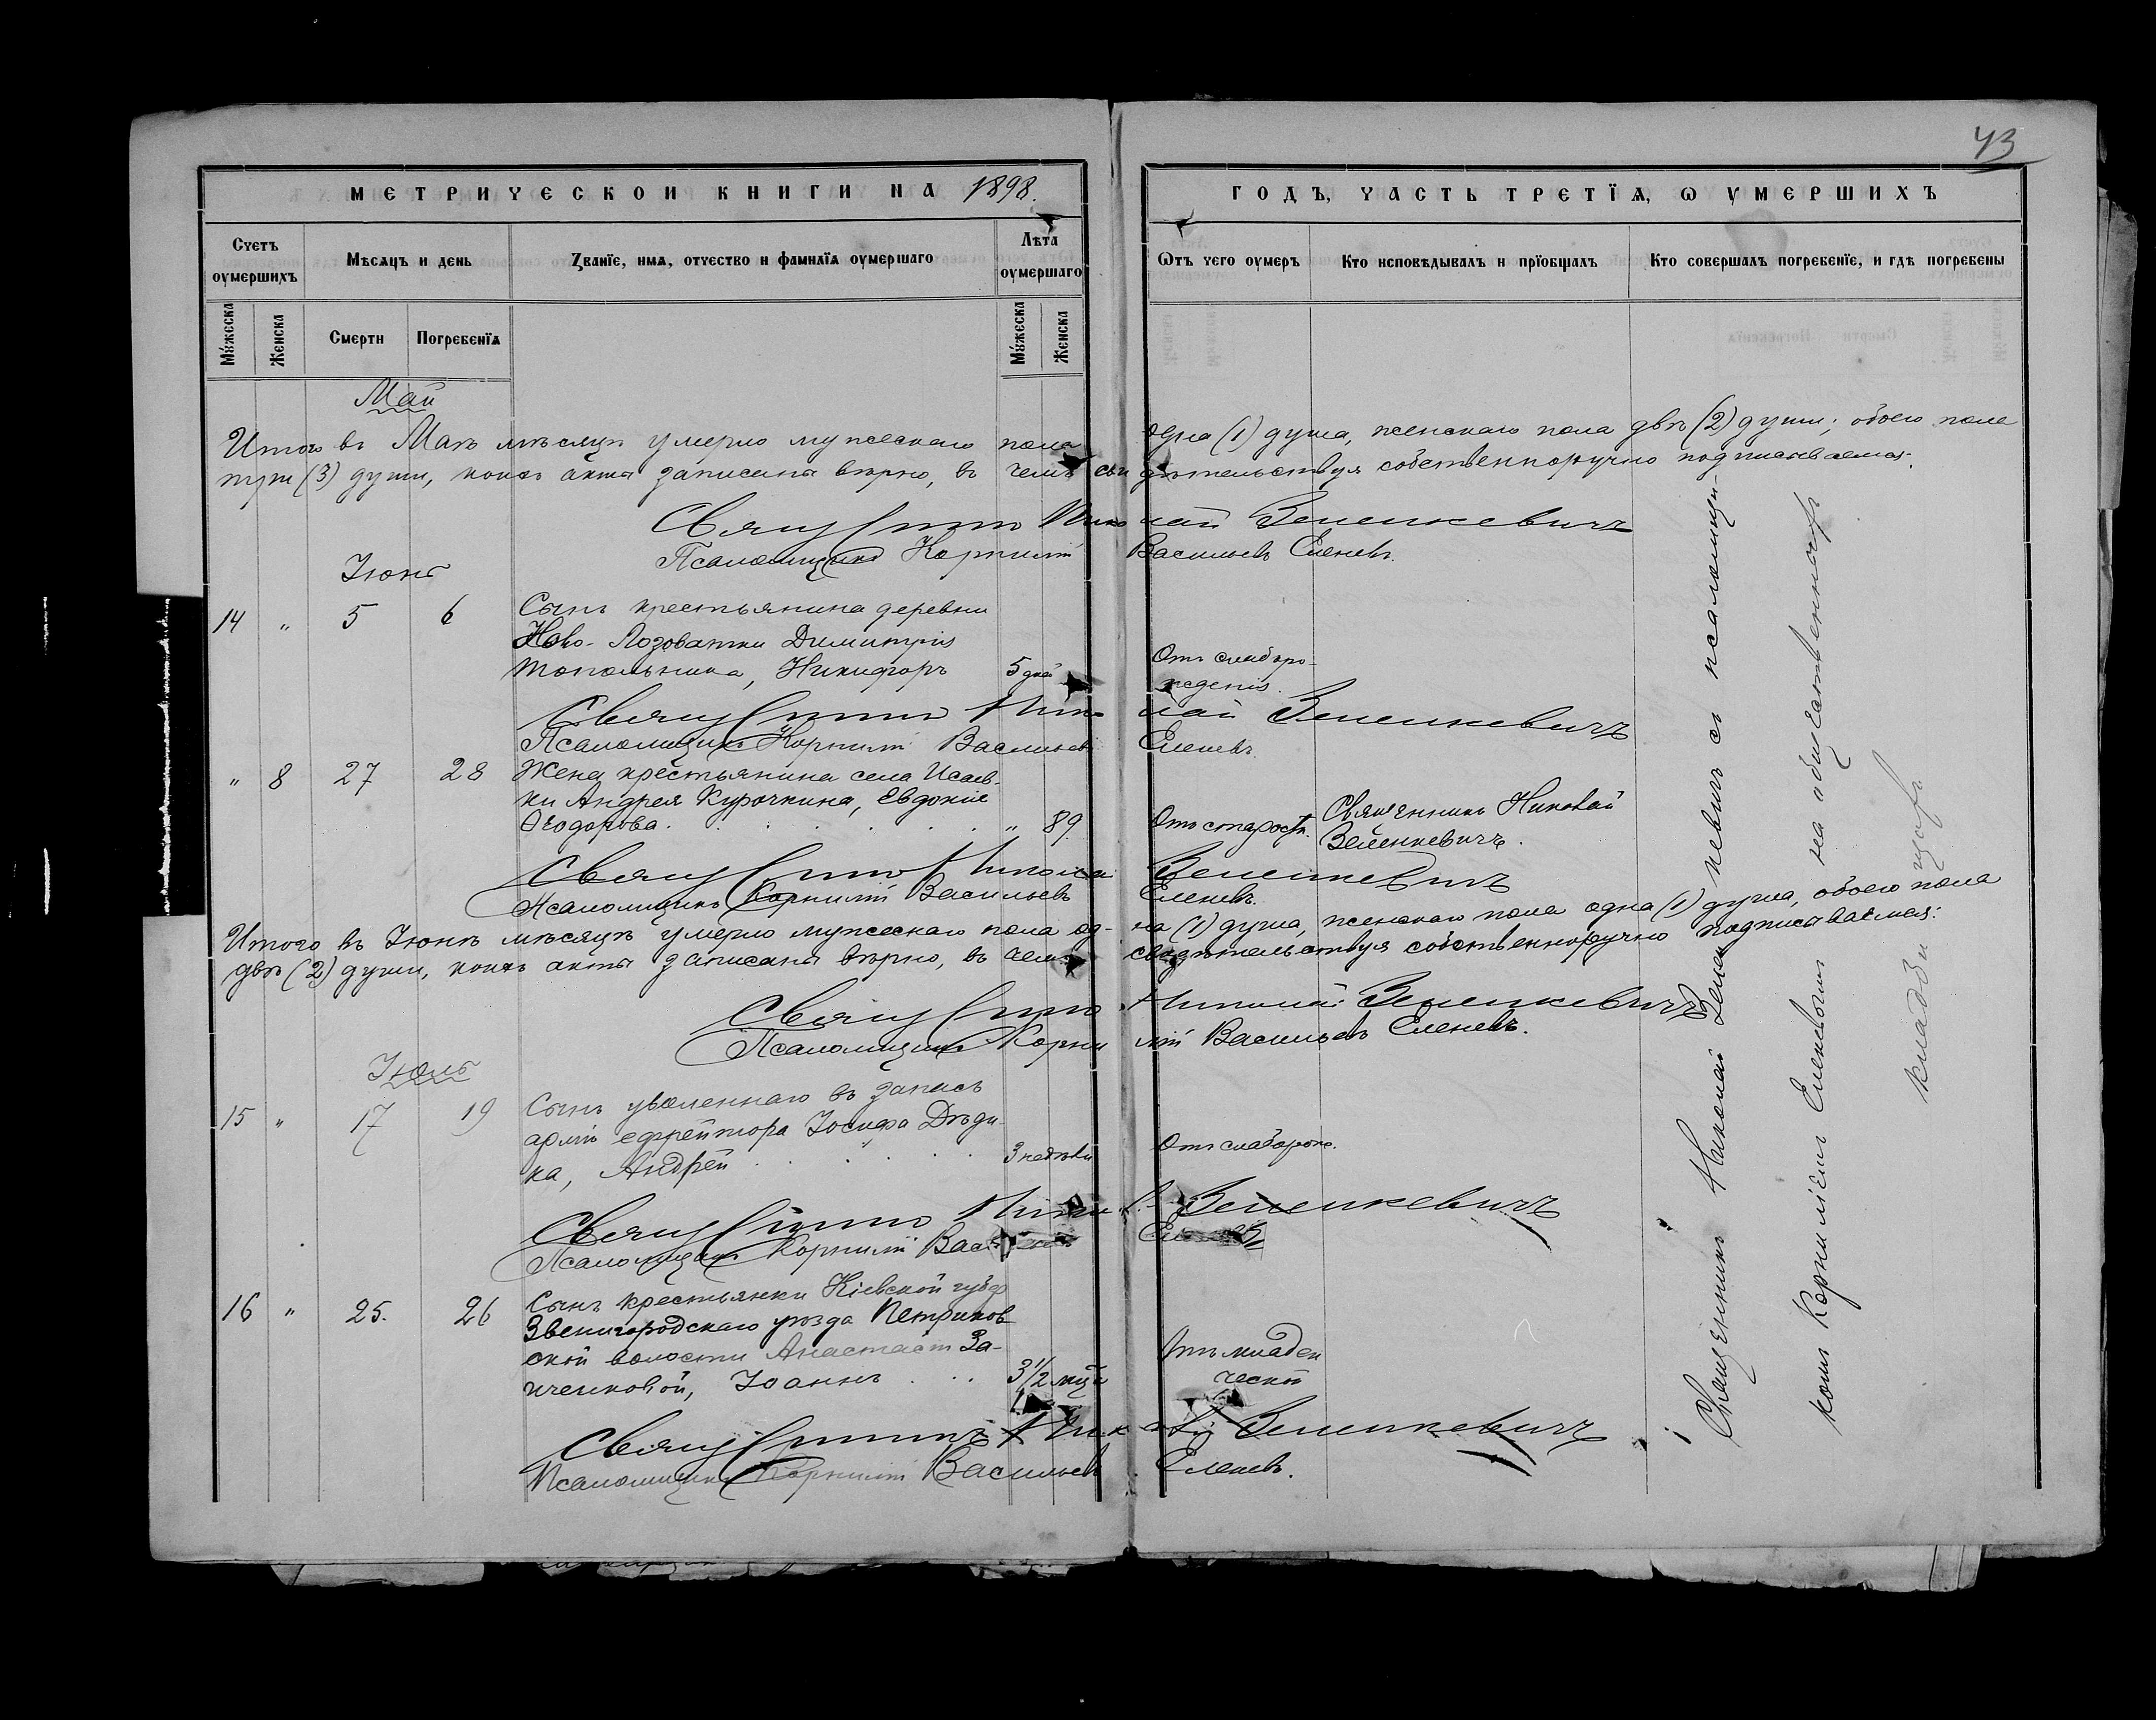 43
МЕТРИЧЕСКОЙ КНИГИ НА 1898.
ГОДЪ, ЧАСТЬ ТРЕТЇѦ, Ѡ УМЕРШИХЪ
Счетъ оумершихъ
Мѣсѧцъ и день
Званїе, имѧ, отчество и фамилїѧ оумершаго
Лѣта оумершаго
Ѿтъ чего оумеръ
Кто исповѣдывалъ и прїобщалъ
Кто совершалъ погребенїе, и гдѣ погребены
Мꙋжеска
Женска
Смерти
Погребенїѧ
Мꙋжеска
Женска
Май
Итого въ Маѣ мѣсяцѣ умерло мужескаго пола одна (1) душа, женскаго пола двѣ (2) души; обоего пола
три (3) души, коихъ акты записаны вѣрно, въ чемъ свидѣтельствуя собственноручно подписываемся:
Священникъ Николай Зеленкевичъ
Псаломщикъ Корнилій Васильевъ Еленевъ.
Іюнь
14 „ 5 6 Сынъ крестьянина деревни
Ново-Лозоватки Димитрія
Топольника, Никифоръ 5 дней Отъ слаборо-
жденія.
Священникъ Николай Зеленкевичъ
Псаломщикъ Корнилій Васильевъ Еленевъ
„ 8 27 28 Жена крестьянина села Исаев-
ки Андрея Курочкина, Евдокія
Ѳеодорова. „ 89 Отъ старости. Священникъ Николай
Зеленкевичъ.
Священникъ Николай Зеленкевичъ
Псаломщикъ Корнилій Васильевъ Еленевъ.
Итого въ Іюнѣ мѣсяцѣ умерло мужескаго пола од-на (1) душа, женскаго пола одна (1) душа, обоего пола
двѣ (2) души, коихъ акты записаны вѣрно, въ чемъ свидѣтельствуя собственноручно подписываемся:
Священникъ Николай Зеленкевичъ
Псаломщикъ Корнилій Васильевъ Еленевъ.
Іюль
15 „ 17 19 Сынъ уволеннаго въ запасъ
арміи ефрейтора Іосифа Дѣди-
ка, Андрей 3 недѣли Отъ слаборож.
Священникъ Николай Зеленкевичъ
Псаломщикъ Корнилій Васильевъ Еленевъ
16 „ 25. 26 Сынъ крестьянки Кіевской губ.
Звенигородскаго уѣзда Петриков-
ской волости Анастасіи За-
иченковой, Іоаннъ 3 1/2 мца Отъ младен
ческой
Священникъ Николай Зеленкевичъ
Псаломщикъ Корнилій Васильевъ Еленевъ.
Священникъ Николай Зеленкевичъ съ псаломщи-
комъ Корниліемъ Еленевымъ на общественномъ
кладбищѣ.